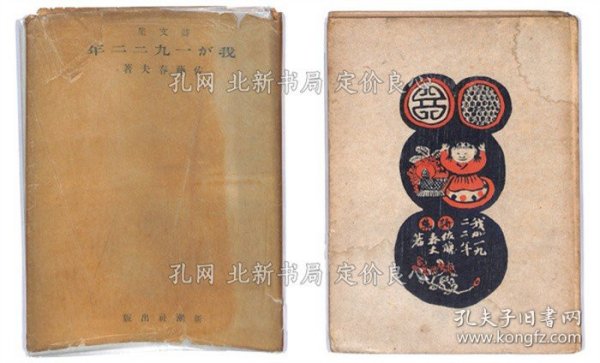 詩文集
我が一九二二年
佐藤春夫著
新潮社出版
我が一九
二二年
佐藤
春夫
著
孔网 北新书局 定价良心
孔网 北新书局 定价良心
孔夫子旧书网
www.kongfz.com